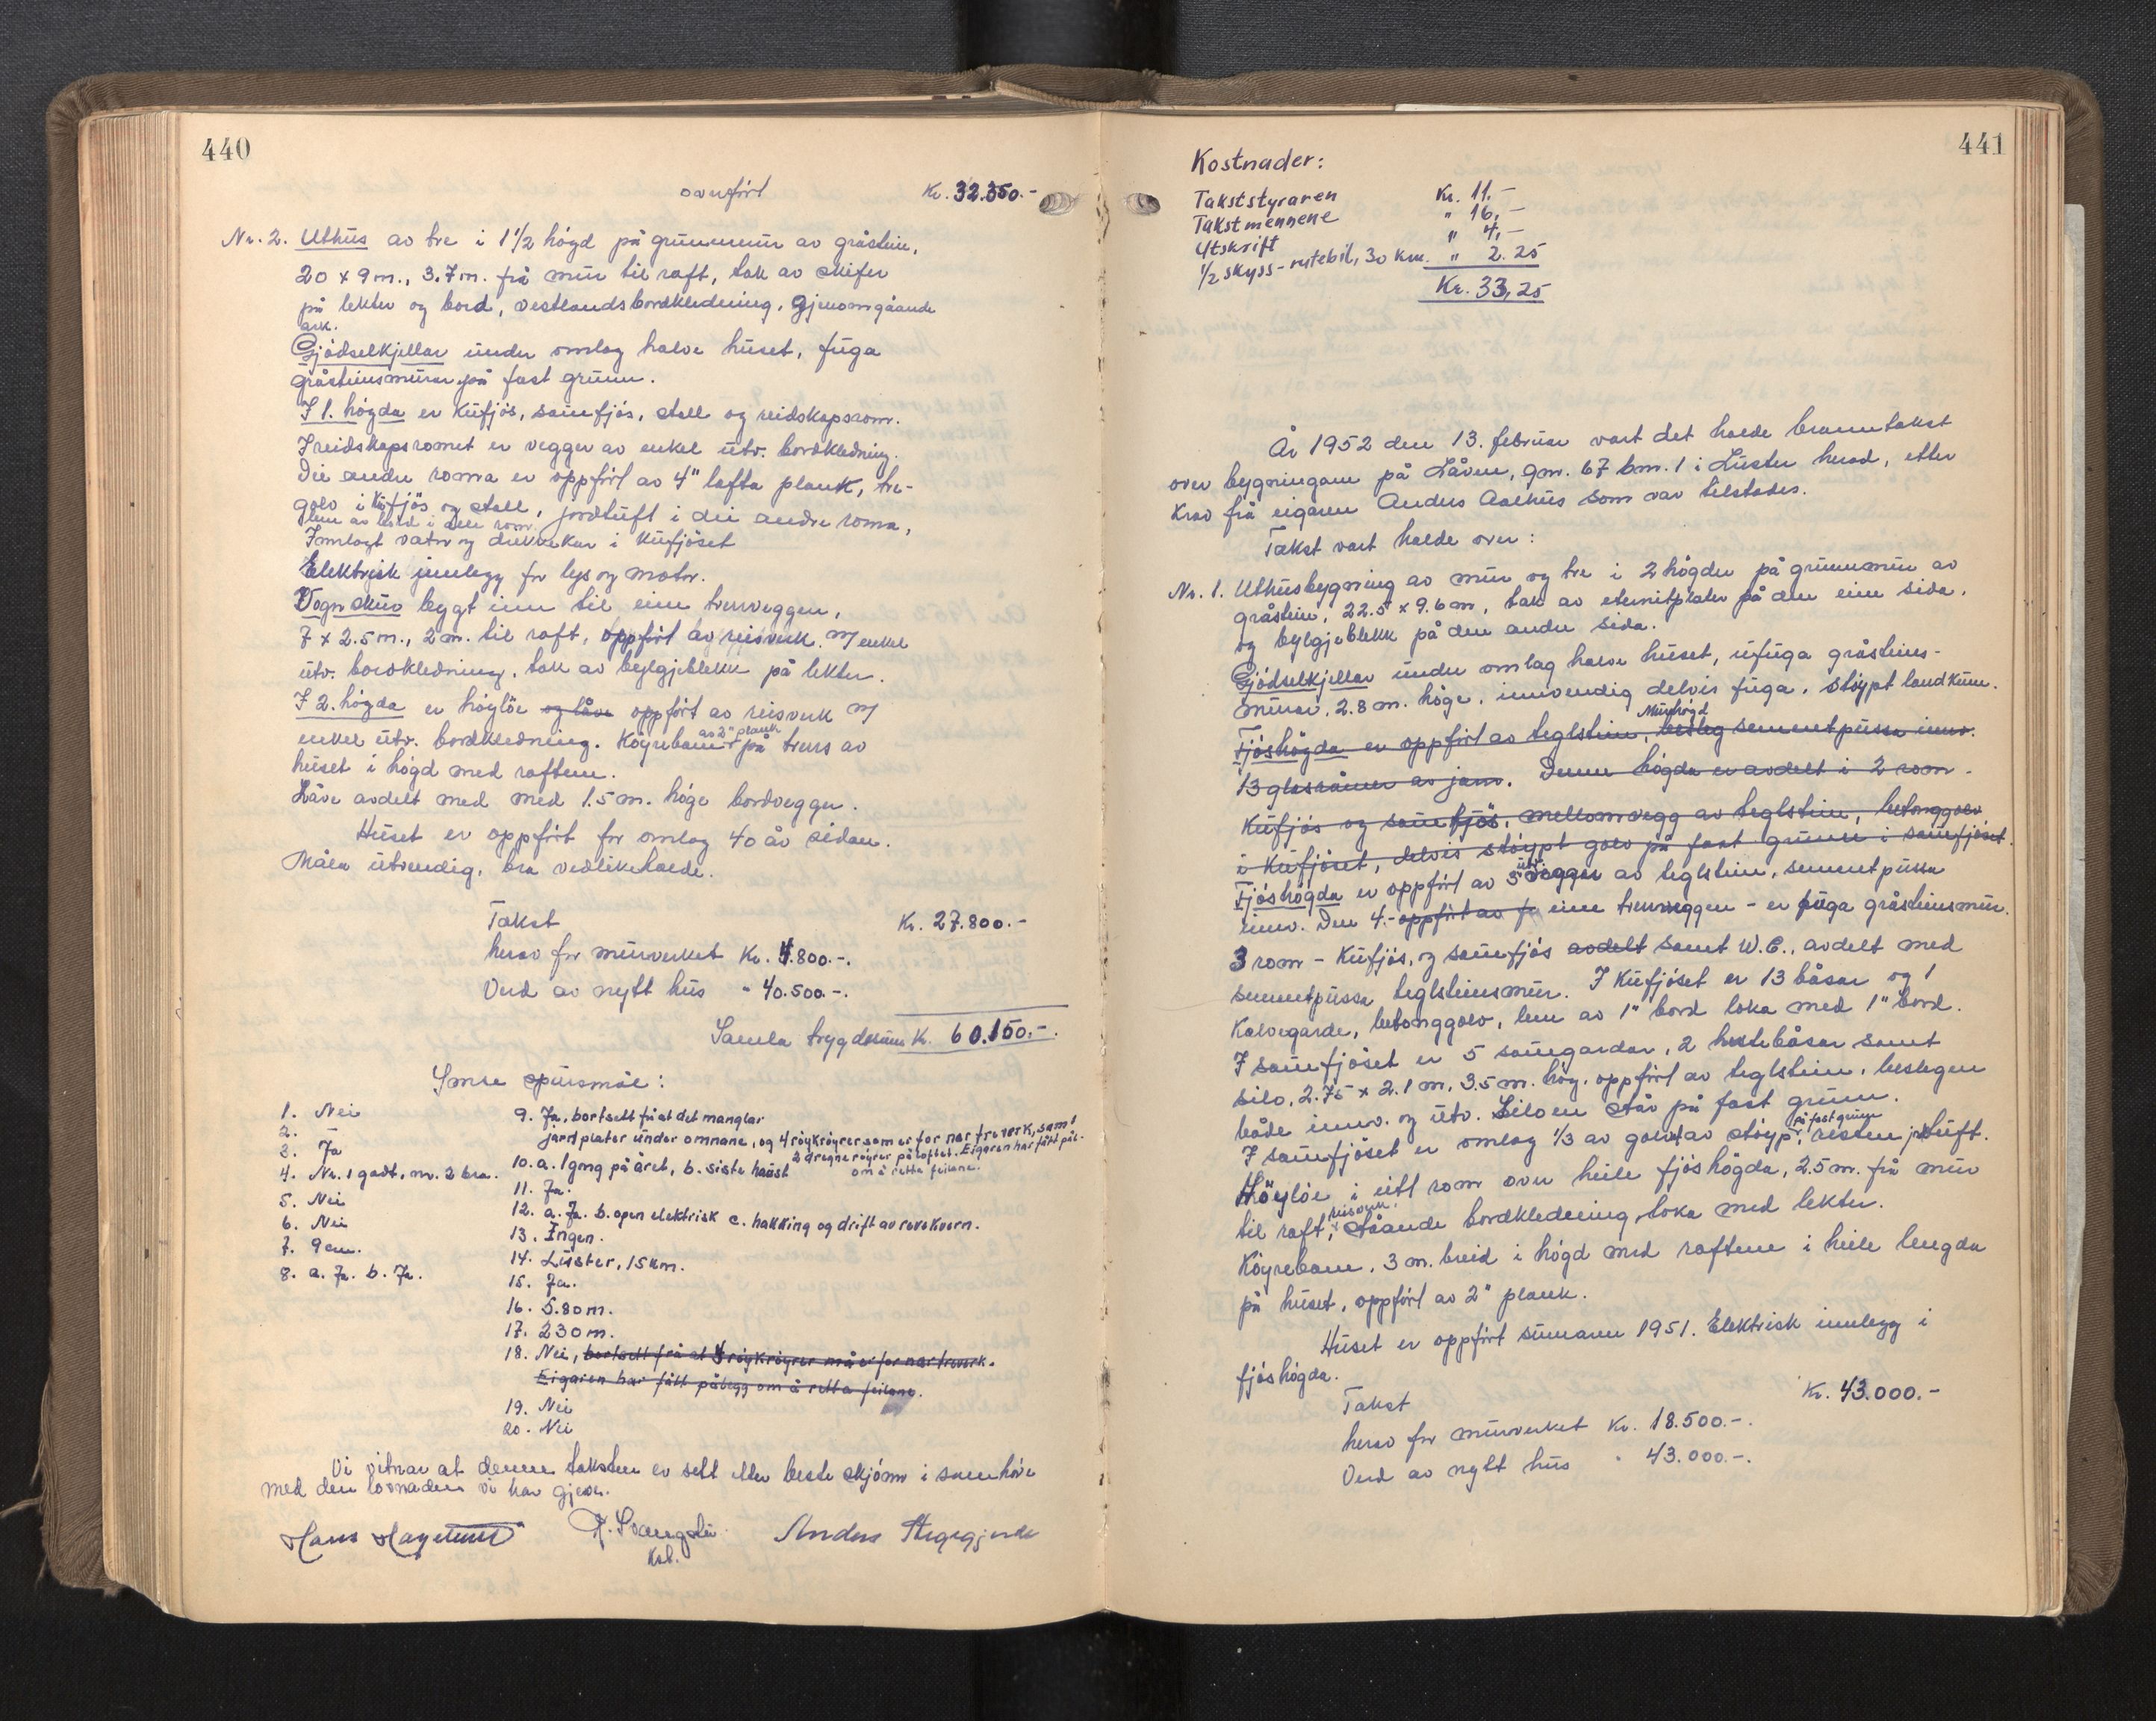 440
ovufört Kr. 32.350.-
Nr. 2. Uthus av tre i 1 1/2 högd på grunnmur av gråstein,
20 x 9 m., 3.7 m. frå mur til raft, tak av skifer
på lekter og bord, vestlandsbordkledning, gjenomgåande
ark.
Gjödselkjellar under omlag halve huset, fuga
gråsteinsmurar på fast grunn.
I 1. högda er kufjös, sauefjös, stall og reidskapsrom.
I reidskapsromet er vegger av enkel utv. bordkledning.
Dei andre roma er oppfört av 4" lafta plank, tre-
golv i kufjös og stall, jordtuft i dei andre roma,
lem av bord i alle rom.
Innlagt vatn og drikkekar i kufjöset
Elektrisk innlegg for lys og motor.
Vognskur bygt inn til eine tverrveggen,
7 x 2.5 m., 2 m. til raft, oppfört av reisverk m/ enkel
utv. bordkledning, tak av bylgjeblekk på lekter.
I 2. högda er höylöe og låve oppfört av reisverk m/
enkel utv. bordkledning. Köyrebane av 2" plank på tvers av
huset i högd med raftene.
Låve avdelt med med 1.5 m. höge bordvegger.
Huset er oppfört for omlag 40 år sidan.
Måla utvendig, bra vedlikehalde.
Takst Kr. 27.800.-
herav for murverket Kr. 4.800.-.
Verd av nytt hus " 40.500.-.
Samla trygdesum Kr. 60.150.-.
Ymse spursmål:
1. Nei
2. -
3. Ja
4. Nr. 1 godt, nr. 2 bra.
5. Nei
6. Nei
7. 9 cm.
8. a. Ja. b. Ja.
9. Ja, bortsett frå at det manglar
jarnplater under omnane, og 4 röykröyrer som er for nær treverk, samt
2 dregne röyrer på loftet. Eigaren har fått pål.
om å retta feilane.
10. a. 1 gong på året, b. siste haust
11. Ja.
12. a. Ja. b. open elektrisk c. hakking og drift av revekvern.
13. Ingen.
14. Luster, 15 km.
15. Ja.
16. 5.80 m.
17. 230 m.
18. Nei, bortsett frå at 4 röykröyrer må er for nær treverk.
Eigaren har fått pålegg om å retta feilane.
19. Nei
20. Nei
Vi vitnar at denne taksten er sett etter beste skjönn i samhöve
med den lovnaden vi har gjeve.
Hans Hagetun R. Svangstu Anders Thegegjerde
Ksb.
441
Kostnader:
Takststyraren Kr. 11.-
Takstmennene " 16.-
Utskrift " 4.-
1/2 skyss-rutebil, 30 km. " 2.25
Kr. 33,25
År 1952 den 13. februar vart det halde branntakst
over bygningane på Låven, gnr. 67 bnr. 1 i Luster herad, etter
krav frå eigaren Anders Aalhus som var tilstades.
Takst vart halde over:
Nr. 1. Uthusbygning av mur og tre i 2 högder på grunnmur av
gråstein, 22.5 x 9.6 m, tak av eternitplater på den eine sida,
og bylgjeblekk på den andre sida.
Gjödselkjellar under omlag halve huset, ufuga gråsteins-
murar, 2.8 m. höge, innvendig delvis fuga, stöypt landkum.
Murhögd
Fjöshögda er oppfört av teglstein, beslag sementpussa innv.
13 glasråmer av jarn. Denne högda er avdelt i 2 rom.
Kufjös og sauefjös, mellomvegg av teglstein, betonggolv
i kufjöset, delvis stöypt golv på fast grunn i sauefjöset.
Fjöshögda er oppfört av 3 utv. vegger av teglstein, sementpussa
innv. Den 4.- oppfört av fr eine tverrveggen - er fuga gråsteinsmur.
3 rom - kufjös, og sauefjös avdelt samt W.C., avdelt med
sementpussa teglsteinsmur. I kufjöset er 13 båsar og 1
kalvegarde, betonggolv, lem av 1" bord loka med 1" bord.
I sauefjöset er 5 sauegardar, 2 hestebåsar samt
silo, 2.75 x 2.1 m, 3.5 m. hög, oppfört av teglstein, beslegen
både innv. og utv. Siloen står på fast grunn.
I sauefjöset er omlag 1/3 av golvet av stöyp på fast grunn, resten jordtuft.
Höylöe i eitt rom over heile fjöshögda, 2.5 m. frå mur
til raft, reisverk, ståande bordkledning loka med lekter.
Köyrebane, 3 m. breid i högd med raftene i heile lengda
på huset, oppfört av 2" plank.
Huset er oppfört sumaren 1951. Elektrisk innlegg i
fjöshögda.
Takst Kr. 43.000.-
herav for murverket Kr. 18.500.-.
Verd av nytt hus " 43.000.-.